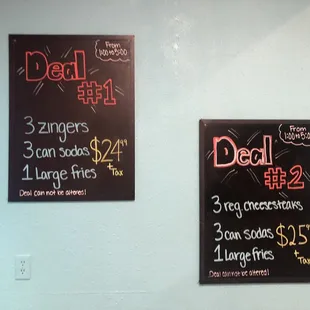 Deal
#1
From
1:00 to 5:00
3 zingers
3 can sodas
1 Large fries
$24⁹⁹
+
Tax
Deal can not be altered!
Deal
#2
From
1:00 to 5:00
3 reg. cheesesteaks
3 can sodas
1 Large fries
$25
+
Tax
Deal can not be altered!